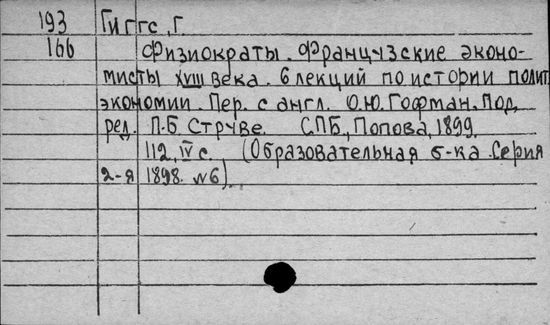 193 Гиггс, Г.
166 Физиократы. Французские эконо-
мисты XVIII века. 6 лекций по истории полит.
экономии. Пер. с англ. О.Ю. Гофман. Под
ред. П.Б. Струве. СПБ, Попова, 1899.
112, IV с. (Образовательная б-ка. Серия
2-я 1898. №6)